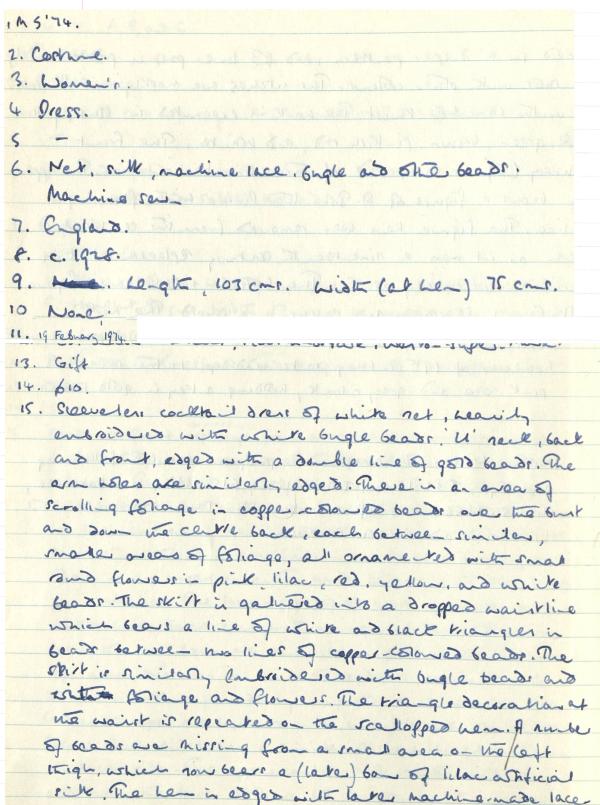 1 M S '74.
2. Costume.
3. Women's.
4 Dress.
5 —
6. Net, silk, machine lace, bugle and other beads.
Machine sewn
7. England.
8. c. 1928.
9. Length, 103 cms. Width (at hem) 75 cms.
10 None.
11. 19 February 1974.
13. Gift
14. £10.
15. Sleeveless cocktail dress of white net, heavily
embroidered with white bugle beads. 'U' neck, back
and front, edged with a double line of gold beads. The
arm holes are similarly edged. There is an area of
scrolling foliage in copper-coloured beads over the bust
and down the centre back, each between similar,
smaller areas of foliage, all ornamented with small
round flowers in pink, lilac, red, yellow, and white
beads. The skirt is gathered into a dropped waistline
which bears a line of white and black triangles in
beads between two lines of copper-coloured beads. The
skirt is similarly embroidered with bugle beads and
foliage and flowers. The triangle decoration at
the waist is repeated on the scalloped hem. A number
of beads are missing from a small area on the left
thigh, which now bears a (later) bow of lilac artificial
silk. The hem is edged with later machine-made lace